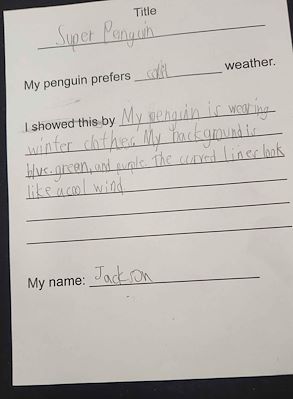 Title
Super Penguin
My penguin prefers cold weather.
I showed this by My penguin is wearing
winter clothes. My background is
blue, green, and purple. The curved lines look
like a cool wind
My name: Jackson